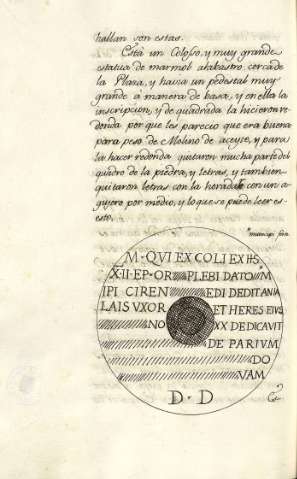 hallan son estas.
Está un Coloso, y muy grande
estatua de marmol alabastro, cerca de
la Plaza, y havia un pedestal muy
grande à manera de basa, y en ella la
inscripcion, y de quadrada la hicieron re-
donda por que les parecio que era buena
para peso de Molino de aceyte, y para
la hacer redonda quitaron mucha parte del
quadro de la piedra, y letras, y tambien
quitaron letras con la con un a-
gujero por medio, y lo que se puede leer es
esto.
M·QVI EX COLI EX IIS
X·II·EP·OR PLEBI DATO M
IPI CIREN EDI DEDITANIA
LAIS VXOR ET HERES EIVS
NO XX DEDICAVIT
DE PARIVM
DO
VAM
D·D